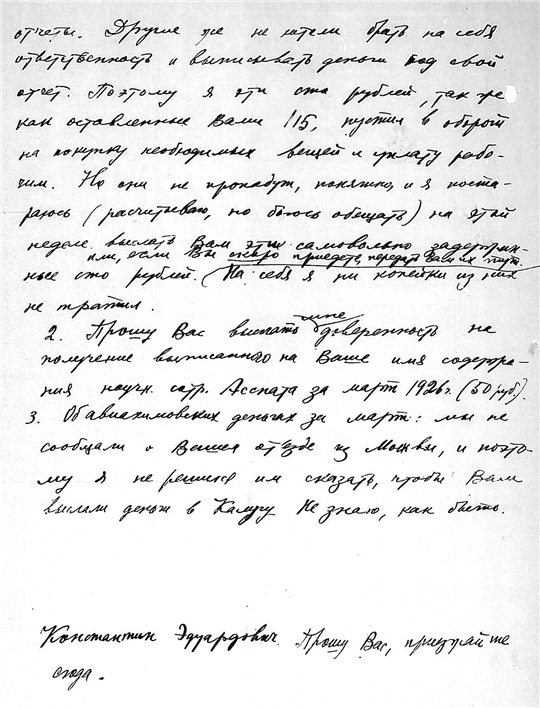 отчеты. Другие же не хотели брать на себя
ответственность и выписывать деньги под свой
отчет. Поэтому я эти сто рублей, так же
как оставленные Вами 115, пустил в оборот
на покупку необходимых вещей и уплату рабо-
чим. Но они не пропадут, понятно, и я поста-
раюсь (расчитываю, но боюсь обещать) на этой
неделе выслать Вам эти самовольно задержан-
или, если Вы скоро приедете, передать Вам их тут.
ные сто рублей. (На себя я ни копейки из них
не тратил.
мне
2. Прошу Вас выслать доверенность на
получение выписанного на Ваше имя содержа-
ния научн. сотр. Асспата за март 1926 г. (50 руб).
3. Об авиахимовских деньгах за март: мы не
сообщали о Вашем отъезде из Москвы, и поэто-
му я не решился им сказать, чтобы Вам
выслали деньги в Калугу. Не знаю, как быть.
Константин Эдуардович. Прошу Вас, приезжайте
сюда.